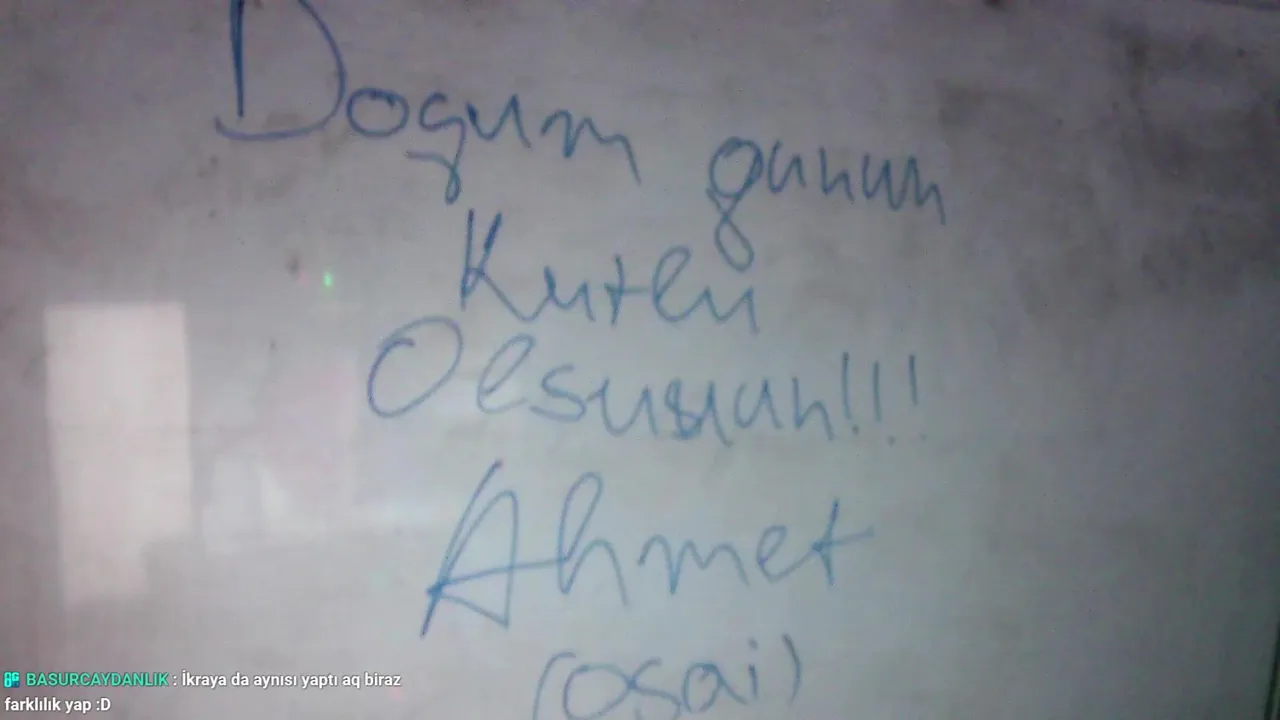 Dogum gunun
Kutlu
Olsusun!!!
Ahmet
(osai)
BASURCAYDANLIK : İkraya da aynısı yaptı aq biraz
farklılık yap :D